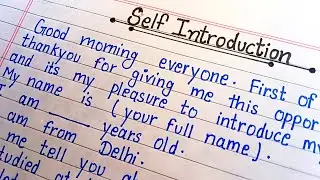 Self Introduction
Good morning everyone. First of
thankyou for giving me this oppor
and it's my pleasure to introduce my
My name is (your full name).
I am ___ years old.
I am from Delhi.
me tell you
studied at